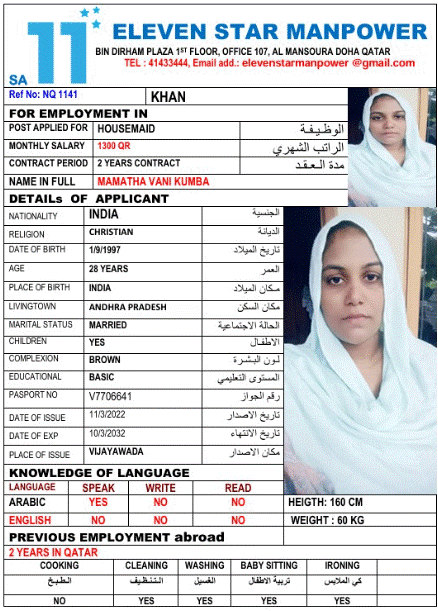 11
SA
ELEVEN STAR MANPOWER
BIN DIRHAM PLAZA 1ST FLOOR, OFFICE 107, AL MANSOURA DOHA QATAR
TEL : 41433444, Email add.: elevenstarmanpower @gmail.com
Ref No: NQ 1141 KHAN
FOR EMPLOYMENT IN
POST APPLIED FOR HOUSEMAID الوظيفة
MONTHLY SALARY 1300 QR الراتب الشهري
CONTRACT PERIOD 2 YEARS CONTRACT مدة العقد
NAME IN FULL MAMATHA VANI KUMBA
DETAILs OF APPLICANT
NATIONALITY INDIA الجنسية
RELIGION CHRISTIAN الديانة
DATE OF BIRTH 1/9/1997 تاريخ الميلاد
AGE 28 YEARS العمر
PLACE OF BIRTH INDIA مكان الميلاد
LIVINGTOWN ANDHRA PRADESH مكان السكن
MARITAL STATUS MARRIED الحالة الاجتماعية
CHILDREN YES الاطفال
COMPLEXION BROWN لون البشرة
EDUCATIONAL BASIC المستوى التعليمي
PASPORT NO V7706641 رقم الجواز
DATE OF ISSUE 11/3/2022 تاريخ الاصدار
DATE OF EXP 10/3/2032 تاريخ الانتهاء
PLACE OF ISSUE VIJAYAWADA مكان الاصدار
KNOWLEDGE OF LANGUAGE
LANGUAGE SPEAK WRITE READ
ARABIC YES NO NO HEIGTH: 160 CM
ENGLISH NO NO NO WEIGHT : 60 KG
PREVIOUS EMPLOYMENT abroad
2 YEARS IN QATAR
COOKING CLEANING WASHING BABY SITTING IRONING
الطبخ التنظيف الغسيل تربية الاطفال كي الملابس
NO YES YES YES YES